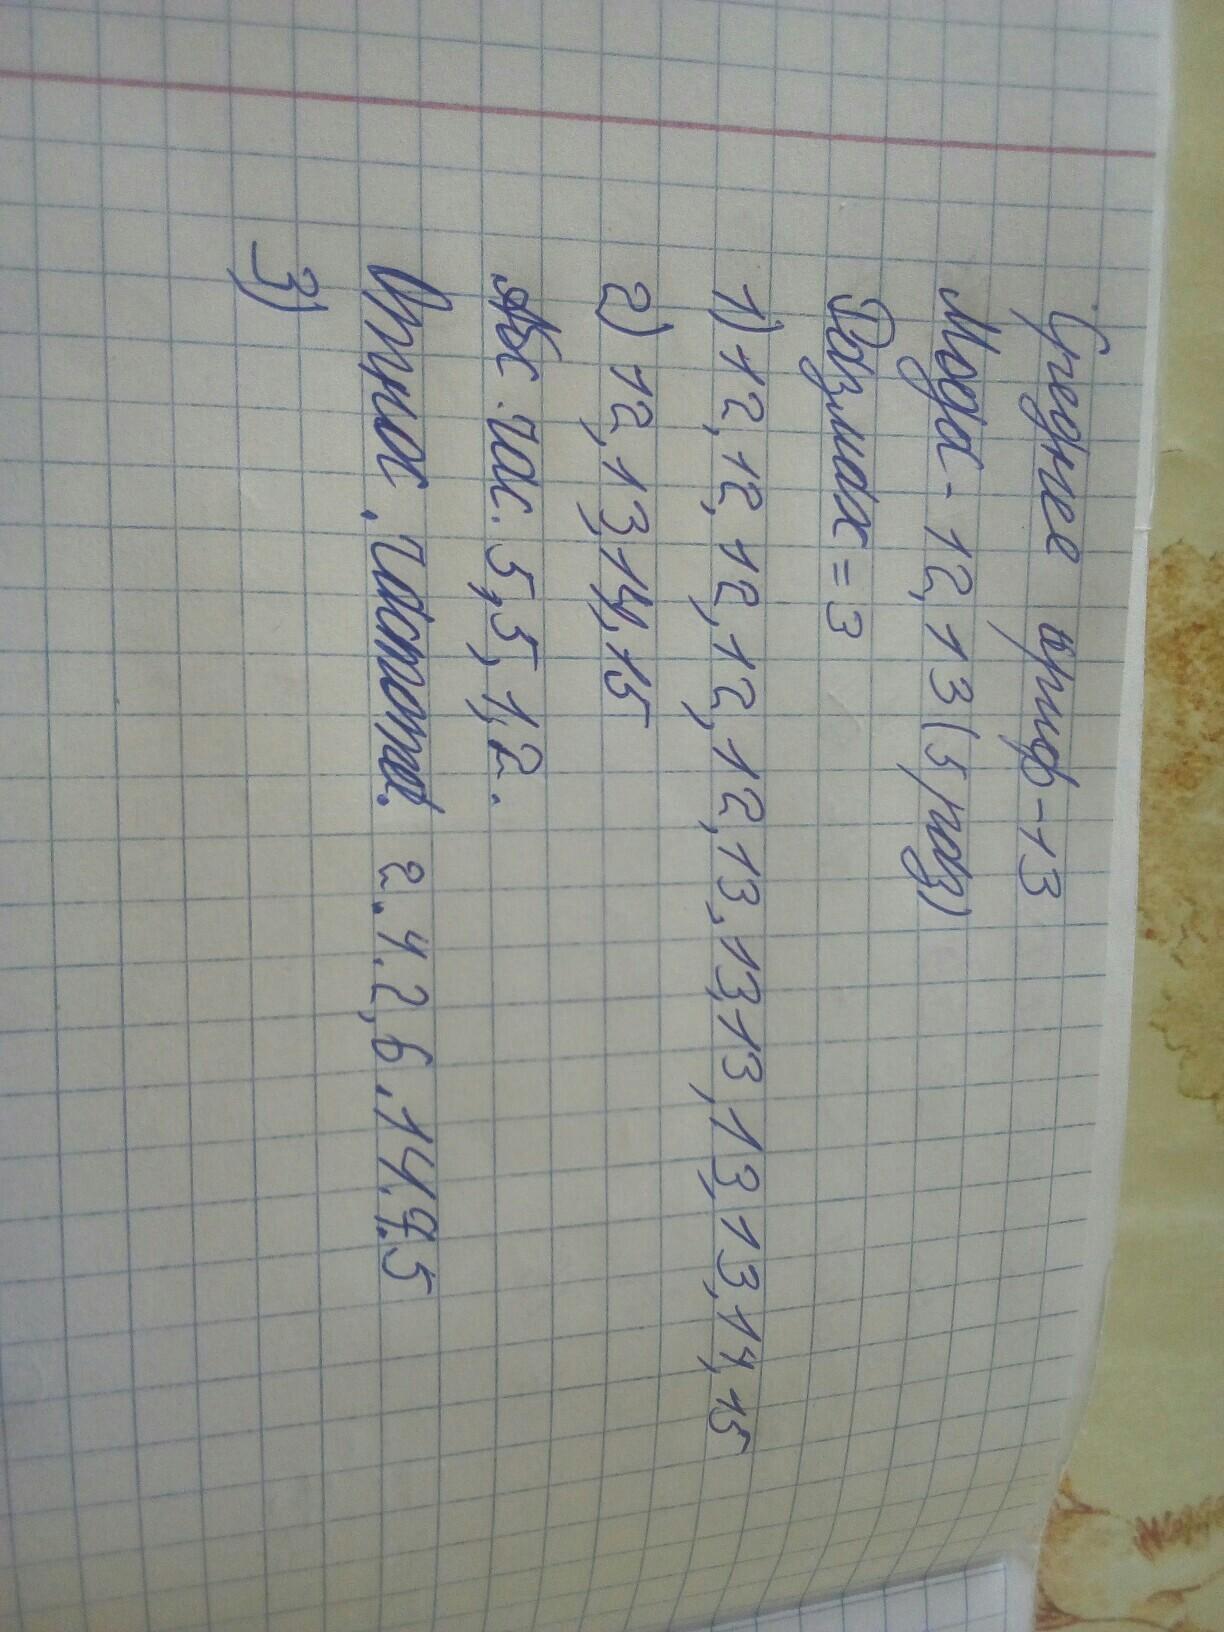 Среднее ариф-13
Мода - 12,13 (5 раз)
Размах = 3
1) 12, 12, 12, 12, 12, 13, 13, 13, 13, 13, 14, 15
2) 12, 13, 14, 15
Абс. час. 5, 5, 1, 2.
Относ. частота. 2.4.2, 6.14.4.5
3)